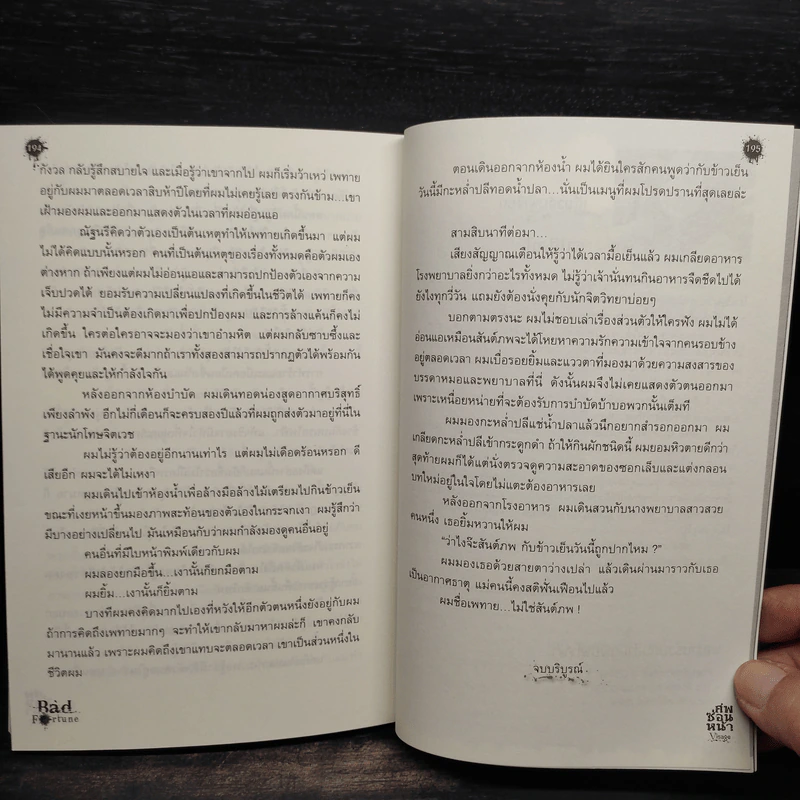 194
กังวล กลับรู้สึกสบายใจ และเมื่อรู้ว่าเขาจากไป ผมก็เริ่มว้าเหว่ เพทาย
อยู่กับผมมาตลอดเวลาสิบห้าปีโดยที่ผมไม่เคยรู้เลย ตรงกันข้าม...เขา
เฝ้ามองผมและออกมาแสดงตัวในเวลาที่ผมอ่อนแอ
ณัฐนรีคิดว่าตัวเองเป็นต้นเหตุทำให้เพทายเกิดขึ้นมา แต่ผม
ไม่ได้คิดแบบนั้นหรอก คนที่เป็นต้นเหตุของเรื่องทั้งหมดคือตัวผมเอง
ต่างหาก ถ้าเพียงแต่ผมไม่อ่อนแอและสามารถปกป้องตัวเองจากความ
เจ็บปวดได้ ยอมรับความเปลี่ยนแปลงที่เกิดขึ้นในชีวิตได้ เพทายก็คง
ไม่มีความจำเป็นต้องเกิดมาเพื่อปกป้องผม และการล้างแค้นก็คงไม่
เกิดขึ้น ใครต่อใครอาจจะมองว่าเขาอำมหิต แต่ผมกลับซาบซึ้งและ
เชื่อใจเขา มันคงจะดีมากถ้าเราทั้งสองสามารถปรากฏตัวได้พร้อมกัน
ได้พูดคุยและให้กำลังใจกัน
หลังออกจากห้องบำบัด ผมเดินทอดน่องสูดอากาศบริสุทธิ์
เพียงลำพัง อีกไม่กี่เดือนก็จะครบสองปีแล้วที่ผมถูกส่งตัวมาอยู่ที่นี่ใน
ฐานะนักโทษจิตเวช
ผมไม่รู้ว่าต้องอยู่อีกนานเท่าไร แต่ผมไม่เดือดร้อนหรอก ดี
เสียอีก ผมจะได้ไม่เหงา
ผมเดินไปเข้าห้องน้ำเพื่อล้างมือล้างไม้เตรียมไปกินข้าวเย็น
ขณะที่เงยหน้าขึ้นมองภาพสะท้อนของตัวเองในกระจกเงา ผมรู้สึกว่า
มีบางอย่างเปลี่ยนไป มันเหมือนกับว่าผมกำลังมองดูคนอื่นอยู่
คนอื่นที่มีใบหน้าพิมพ์เดียวกับผม
ผมลองยกมือขึ้น...เงานั้นก็ยกมือตาม
ผมยิ้ม...เงานั้นก็ยิ้มตาม
บางทีผมคงคิดมากไปเองที่หวังให้อีกตัวตนหนึ่งยังอยู่กับผม
ถ้าการคิดถึงเพทายมากๆ จะทำให้เขากลับมาหาผมล่ะก็ เขาคงกลับ
มานานแล้ว เพราะผมคิดถึงเขาแทบจะตลอดเวลา เขาเป็นส่วนหนึ่งใน
ชีวิตผม
Bad
Fortune
195
ตอนเดินออกจากห้องน้ำ ผมได้ยินใครสักคนพูดว่ากับข้าวเย็น
วันนี้มีกะหล่ำปลีทอดน้ำปลา...นั่นเป็นเมนูที่ผมโปรดปรานที่สุดเลยล่ะ
สามสิบนาทีต่อมา...
เสียงสัญญาณเตือนให้รู้ว่าได้เวลามื้อเย็นแล้ว ผมเกลียดอาหาร
โรงพยาบาลยิ่งกว่าอะไรทั้งหมด ไม่รู้ว่าเจ้านั่นทนกินอาหารจืดชืดไปได้
ยังไงทุกวี่วัน แถมยังต้องนั่งคุยกับนักจิตวิทยาบ่อยๆ
บอกตามตรงนะ ผมไม่ชอบเล่าเรื่องส่วนตัวให้ใครฟัง ผมไม่ได้
อ่อนแอเหมือนสันต์ภพจะได้โหยหาความรักความเข้าใจจากคนรอบข้าง
อยู่ตลอดเวลา ผมเบื่อรอยยิ้มและแววตาที่มองมาด้วยความสงสารของ
บรรดาหมอและพยาบาลที่นี่ ดังนั้นผมจึงไม่เคยแสดงตัวตนออกมา
เพราะเหนื่อยหน่ายที่จะต้องรับการบำบัดบ้าบอพวกนั้นเต็มที
ผมมองกะหล่ำปลีแช่น้ำปลาแล้วนึกอยากสำรอกออกมา ผม
เกลียดกะหล่ำปลีเข้ากระดูกดำ ถ้าให้กินผักชนิดนี้ ผมยอมหิวตายดีกว่า
สุดท้ายผมก็ได้แต่นั่งตรวจดูความสะอาดของซอกเล็บและแต่งกลอน
บทใหม่อยู่ในใจโดยไม่แตะต้องอาหารเลย
หลังออกจากโรงอาหาร ผมเดินสวนกับนางพยาบาลสาวสวย
คนหนึ่ง เธอยิ้มหวานให้ผม
“ว่าไงจ๊ะสันต์ภพ กับข้าวเย็นวันนี้ถูกปากไหม ?”
ผมมองเธอด้วยสายตาว่างเปล่า แล้วเดินผ่านมาราวกับเธอ
เป็นอากาศธาตุ แม่คนนี้คงสติฟั่นเฟือนไปแล้ว
ผมชื่อเพทาย...ไม่ใช่สันต์ภพ !
จบบริบูรณ์
ศพ
ซ่อน
หน้า
Visage